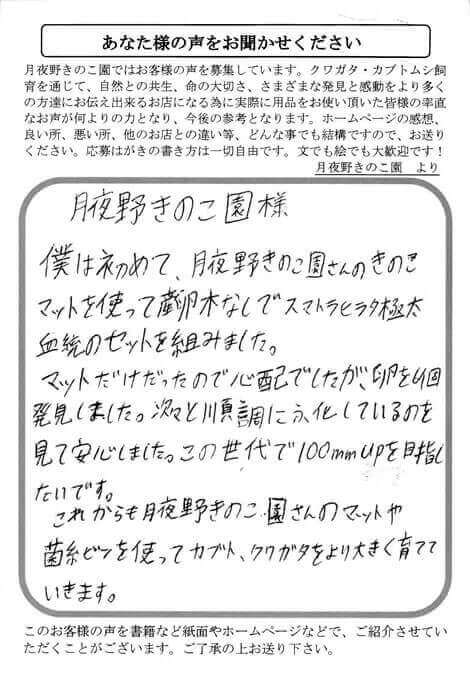 あなた様の声をお聞かせください
月夜野きのこ園ではお客様の声を募集しています。クワガタ・カブトムシ飼
育を通じて、自然との共生、命の大切さ、さまざまな発見と感動をより多く
の方達にお伝え出来るお店になる為に実際に用品をお使い頂いた皆様の率直
なお声が何よりの力となり、今後の参考となります。ホームページの感想、
良い所、悪い所、他のお店との違い等、どんな事でも結構ですので、お送り
ください。応募はがきの書き方は一切自由です。文でも絵でも大歓迎です！
月夜野きのこ園　より
月夜野きのこ園様
僕は初めて、月夜野きのこ園さんのきのこ
マットを使って産卵木なしでスマトラヒラタ極太
血統のセットを組みました。
マットだけだったので心配でしたが、卵を4個
発見しました。次々と順調にふ化しているのを
見て安心しました。この世代で100mmupを目指し
たいです。
これからも月夜野きのこ園さんのマットや
菌糸ビンを使ってカブト、クワガタをより大きく育てて
いきます。
このお客様の声を書籍など紙面やホームページなどで、ご紹介させてい
ただくことがございます。ご了承の上お送り下さい。